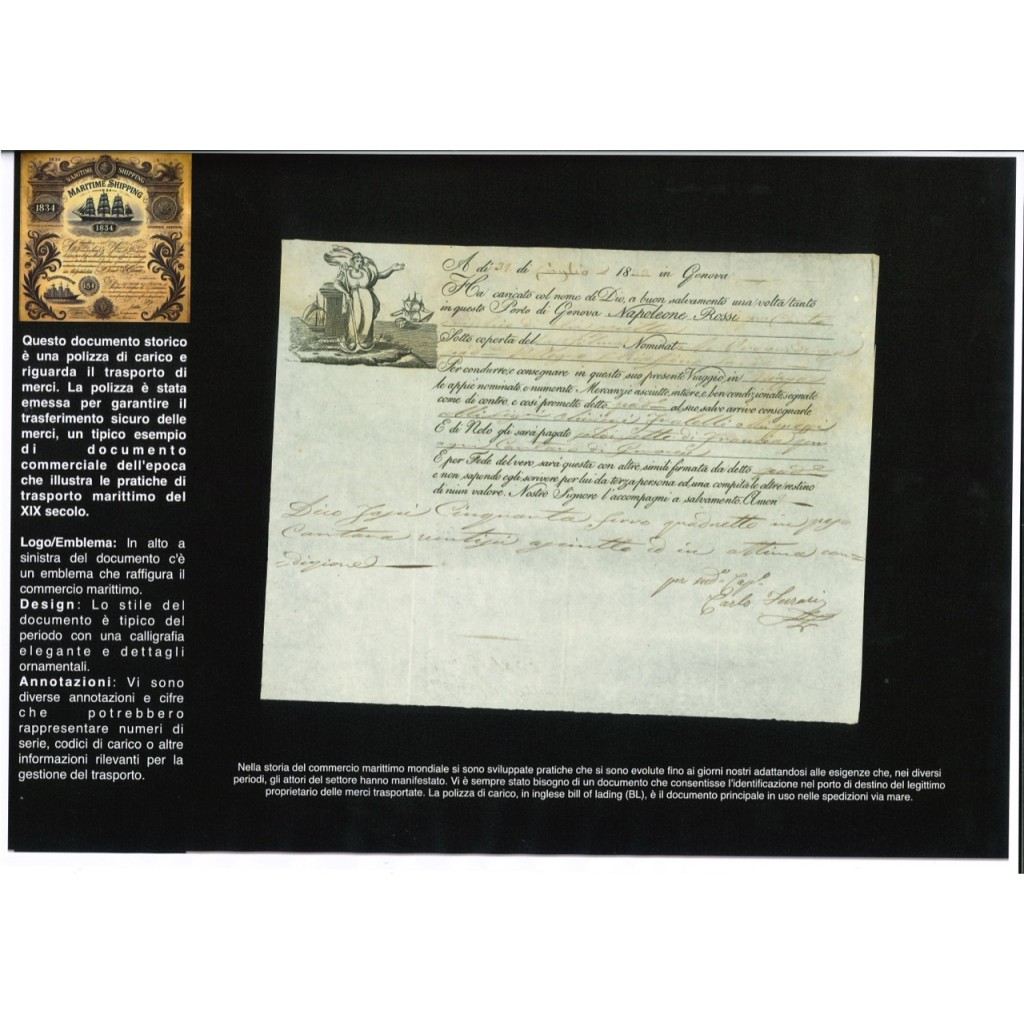 MARITIME SHIPPING
MARITIME SHIPPING
1834
1834
Questo documento storico
è una polizza di carico e
riguarda il trasporto di
merci. La polizza è stata
emessa per garantire il
trasferimento sicuro delle
merci, un tipico esempio
di documento
commerciale dell'epoca
che illustra le pratiche di
trasporto marittimo del
XIX secolo.
Logo/Emblema: In alto a
sinistra del documento c'è
un emblema che raffigura il
commercio marittimo.
Design: Lo stile del
documento è tipico del
periodo con una calligrafia
elegante e dettagli
ornamentali.
Annotazioni: Vi sono
diverse annotazioni e cifre
che potrebbero
rappresentare numeri di
serie, codici di carico o altre
informazioni rilevanti per la
gestione del trasporto.
A di 31 di luglio 18 in Genova
Ha caricato col nome di Dio, a buon salvamento una volta tanto
in questo Porto di Genova Napoleone Rossi
Sotto coperta del Nominat
Per condurre, e consegnare in questo suo presente Viaggio in
le appiè nominate, e numerate Mercanzie asciutte, intiere, e ben condizionate, segnate
come di contro, e così promette detto al suo salvo arrivo consegnarle
E di Nolo gli sarà pagato
E per Fede del vero, sarà questa con altre simili firmata da detto
e non sapendo egli scrivere per lui da terza persona, ed una compita le altre restino
di niun valore. Nostro Signore l'accompagni a salvamento. Amen
Dico Cinquanta, ferro quadretto in
Cantara ventisei asciutto ed in ottima con=
dizione
per Cap.
Carlo
Nella storia del commercio marittimo mondiale si sono sviluppate pratiche che si sono evolute fino ai giorni nostri adattandosi alle esigenze che, nei diversi
periodi, gli attori del settore hanno manifestato. Vi è sempre stato bisogno di un documento che consentisse l'identificazione nel porto di destino del legittimo
proprietario delle merci trasportate. La polizza di carico, in inglese bill of lading (BL), è il documento principale in uso nelle spedizioni via mare.